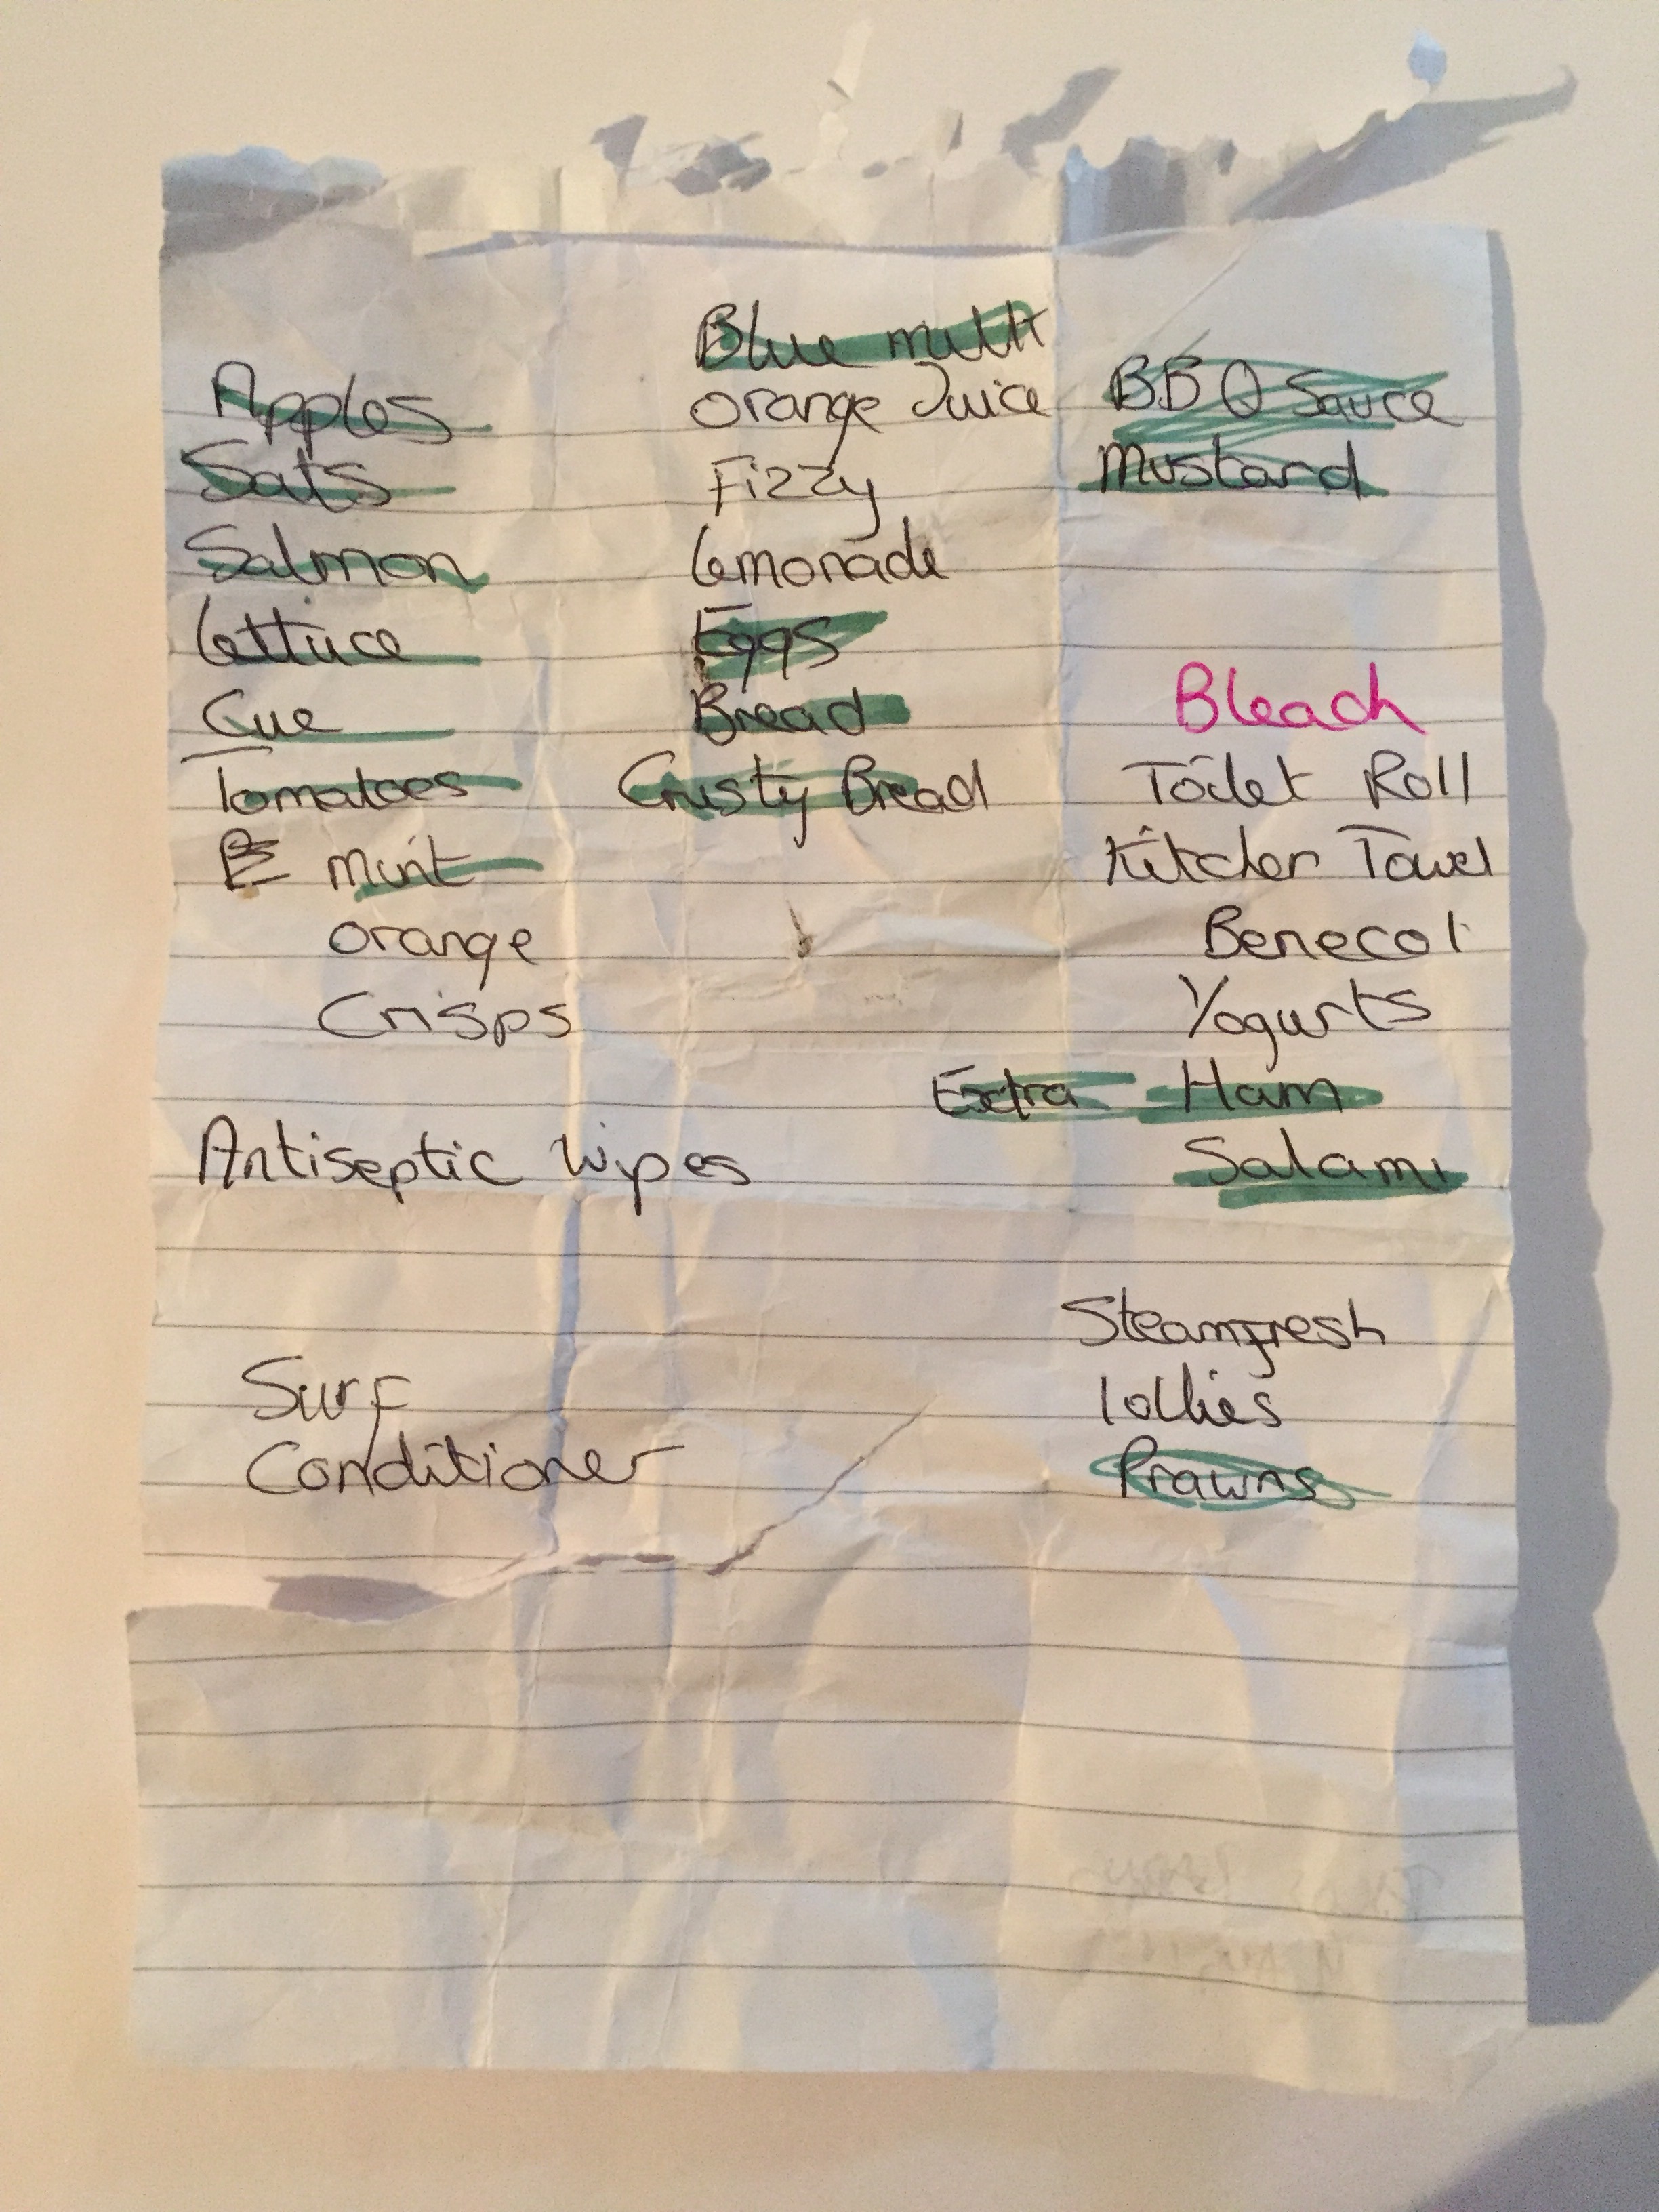 Apples
Sats
Salmon
Lettuce
Cue
Tomatoes
Mint
Orange
Crisps
Antiseptic Wipes
Surf
Conditioner
Blue milk
Orange Juice
Fizzy
Lemonade
Eggs
Bread
Crusty Bread
BBQ Sauce
Mustard
Bleach
Toilet Roll
Kitchen Towel
Benecol
Yogurts
Extra Ham
Salami
Steamfresh
lollies
Prawns